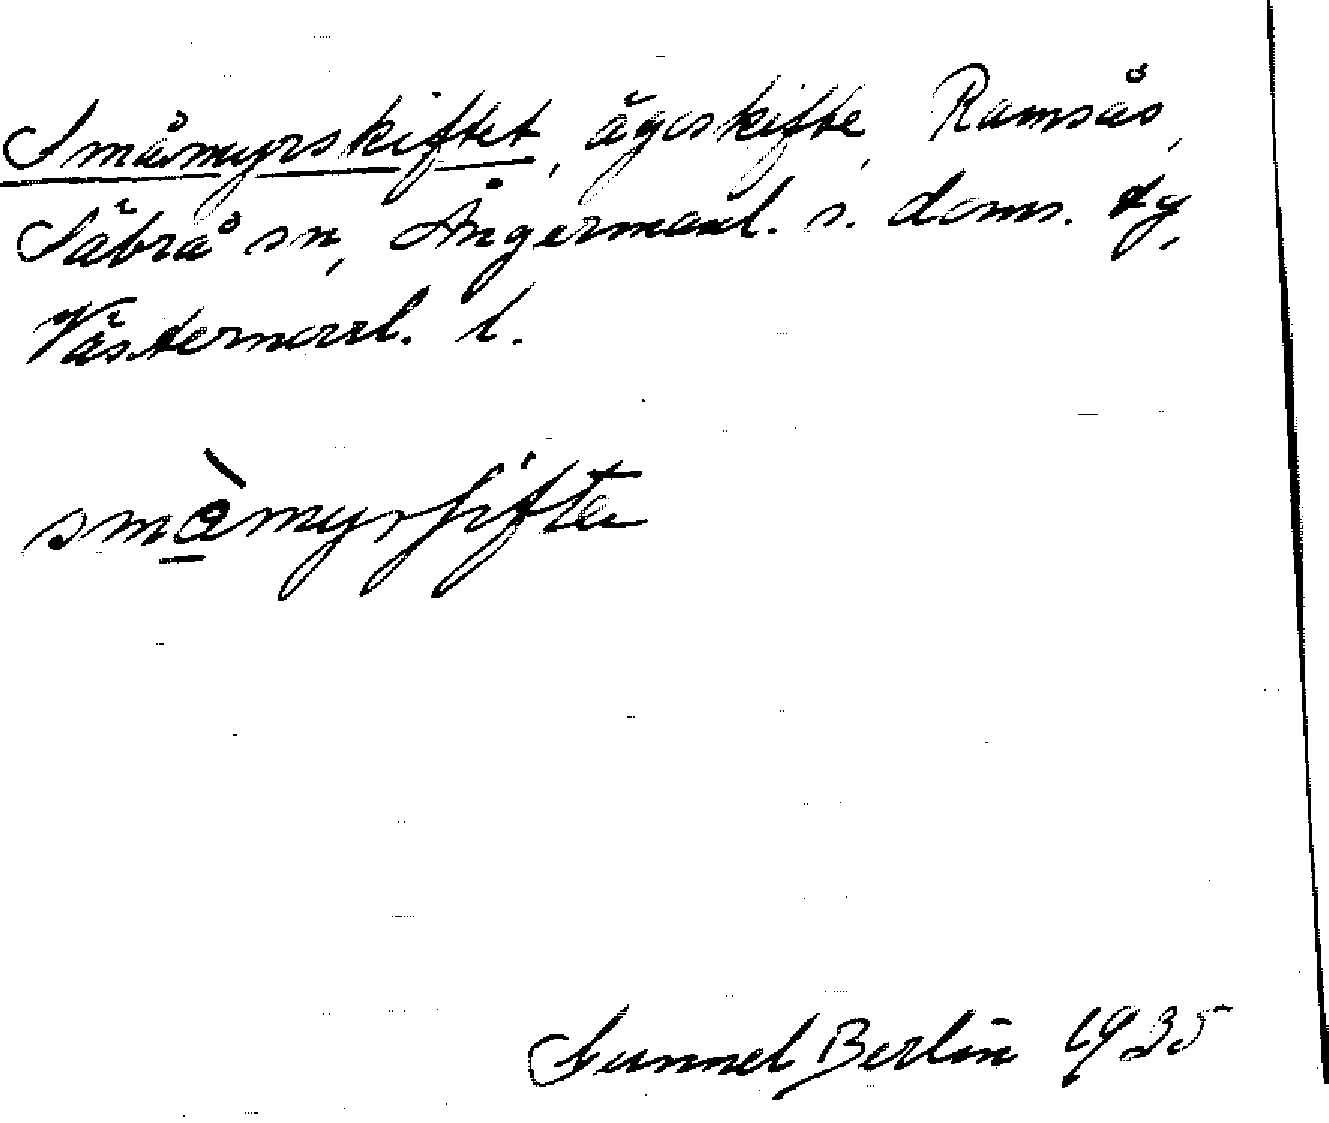 Småmyrskiftet, ägoskifte, Ramsås,
Säbrå sn, Ångermanl. s. doms. tg,
Västernorrl. l.
småmyrʃifte
Gunnel Berlin 1935